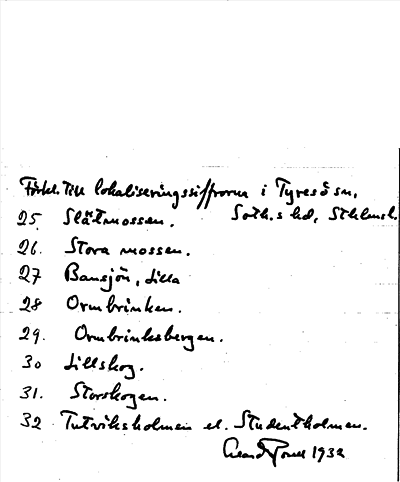 Förkl. till lokaliseringssiffrorna i Tyresö sn.
25. Slätmossen. Soth.s hd, Sthlmsl.
26. Stora mossen.
27 Bansjön, Lilla
28 Ormbrinken.
29. Ormbrinksbergen.
30 Lillskog.
31. Storskogen.
32 Tutviksholmen el. Studentholmen.
1932